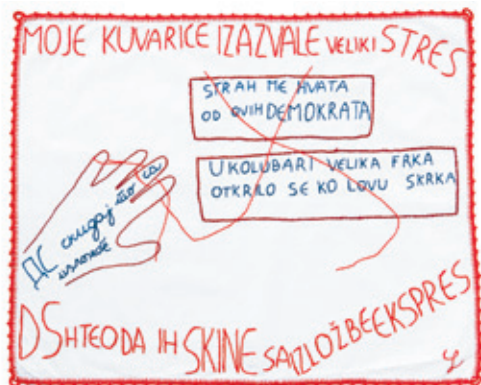 MOJE KUVARICE IZAZVALE VELIKI STRES
STRAH ME HVATA
OD OVIH DEMOKRATA
U KOLUBARI VELIKA FRKA
OTKRILO SE KO LOVU SKRKA
ДС скидај ово са
изложбе
DS HTEO DA IH SKINE SA IZLOŽBE EKSPRES